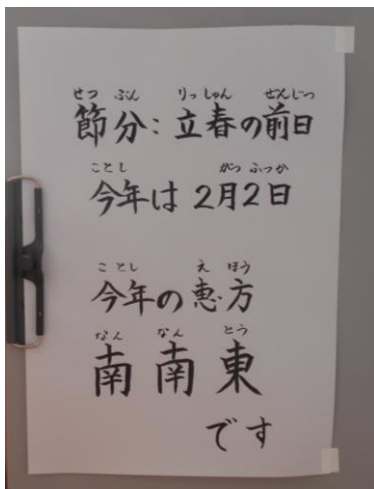 せつ ぶん りっしゅん ぜんじつ
節分：立春の前日
ことし がつ ふつか
今年は 2月2日
ことし え ほう
今年の恵方
なん なん とう
南 南 東
です